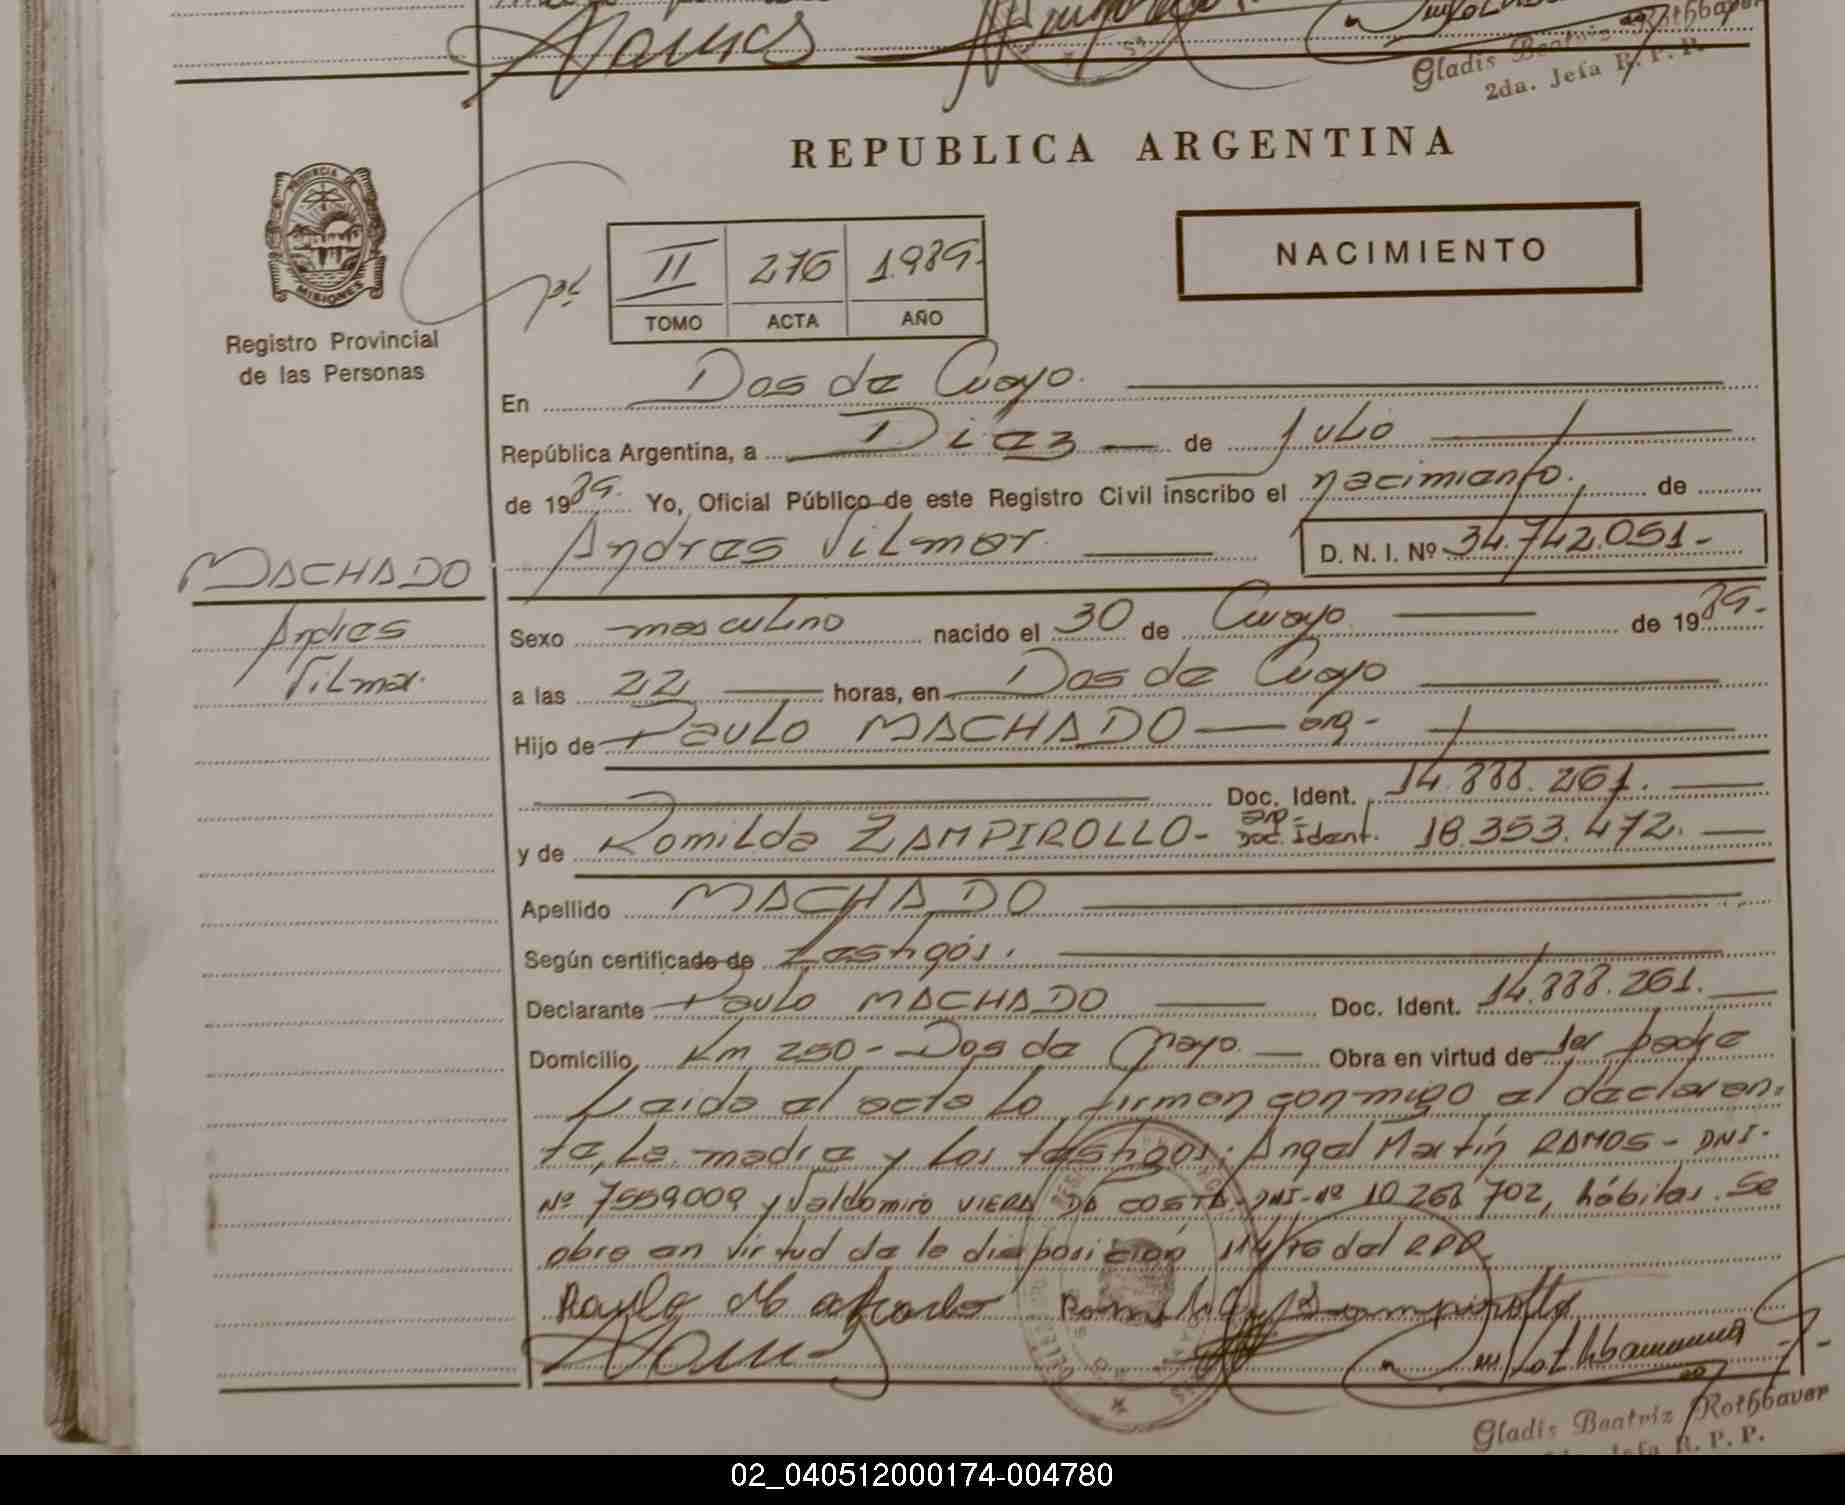 Gladis Beatriz Rothbaver
2da. Jefa R. P. P.
REPUBLICA ARGENTINA
PROVINCIA DE
MISIONES
Registro Provincial
de las Personas
II 276 1.989.
TOMO ACTA AÑO
NACIMIENTO
En Dos de Mayo.
República Argentina, a Diez de Julio
de 1989. Yo, Oficial Público de este Registro Civil inscribo el nacimiento. de
Andres Vilmar D. N. I. Nº 34.742.051-
MACHADO
Andres
Vilmar.
Sexo masculino nacido el 30 de Mayo de 1989.
a las 22 horas, en Dos de Mayo
Hijo de Paulo MACHADO arg-
Doc. Ident. 14.888.261.
y de Romilda ZAMPIROLLO- arg- Doc. Ident. 18.353.472.
Apellido MACHADO
Según certificado de testigos.
Declarante Paulo MACHADO Doc. Ident. 14.888.261.
Domicilio Km 250 - Dos de Mayo. Obra en virtud de ser padre
Leida el acta lo firman conmigo el declaran-
te, la madre y los testigos: Angel Martín RAMOS - DNI-
Nº 7559009 y Valdomiro VIERA DA COSTA - DNI-Nº 10.268 702, hábiles. Se
obra en virtud de la disposición 114/76 del RPP.
Paulo Machado Romilda Zampirollo
Gladis Beatriz Rothbaver
2da. Jefa R. P. P.
02_040512000174-004780